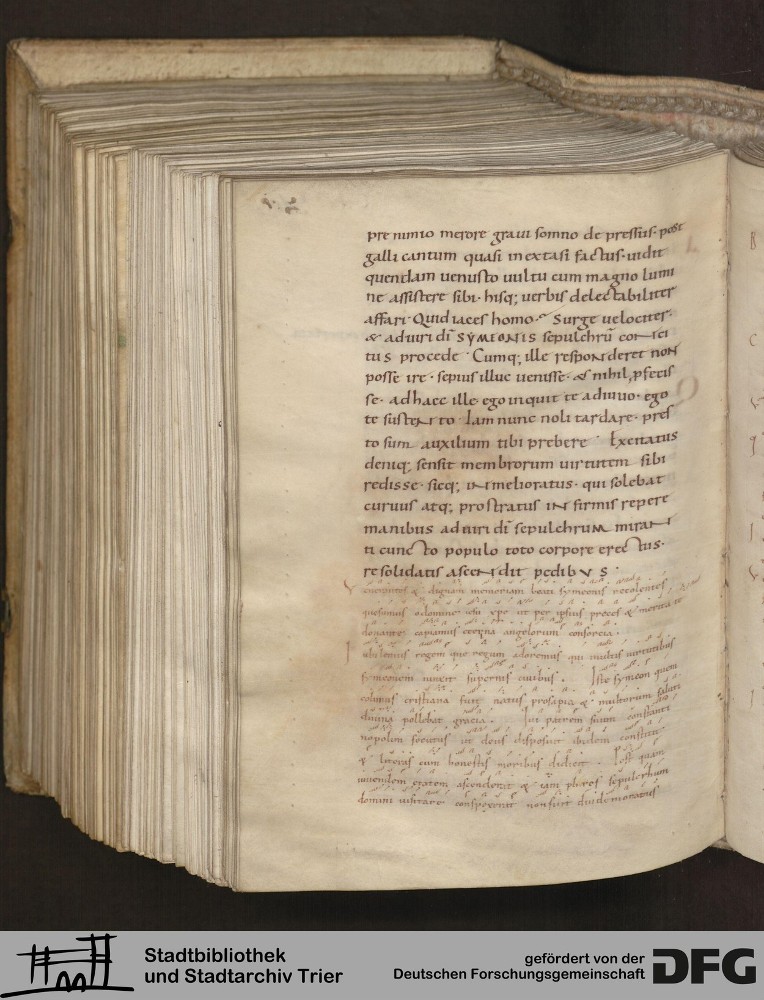 pre nimio merore graui somno de pressus· post
galli cantum quasi in extasi factus· uidit
quendam uenusto uultu cum magno lumi
ne assistere sibi· hisq; uerbis delectabiliter
affari· Quid iaces homo? Surge uelociter·
& ad uiri dī SYMEONIS sepulchrū con ci
tus procede· Cumq; ille responderet non
posse ire· sepius illuc uenisse· & nihil ꝓfecis
se· ad haec ille· ego inquit te adiuuo· ego
te sustento· Iam nunc noli tardare· pres
to sum auxilium tibi prebere· Excitatus
deniq; sensit membrorum uirtutem sibi
redisse· sicq; in melioratus· qui solebat
curuus atq; prostratus in firmis repere
manibus ad uiri dī sepulchrum miran
ti cuncto populo toto corpore erectus·
resolidatis ascendit pedibus·
dignam memoriam beati symeonis recolentes
quesumus o domine ihū xpe ut per ipsius preces & merita te
donante capiamus eterna angelorum consorcia·
regem que regum adoremus qui multis uirtutibus
symeonem iunxit supernis ciuibus· Iste symeon quem
colimus cristiana fuit natus prosapia & multorum
diuina pollebat gracia· patrem suum constanti
nopolim secutus ut deus disposuit ibidem
& literas cum honestis moribus didicit· quam
iuuenilem etatem ascenderit & iam plures sepulchrum
domini uisitare conspexerit
Stadtbibliothek
und Stadtarchiv Trier
gefördert von der
Deutschen Forschungsgemeinschaft
DFG